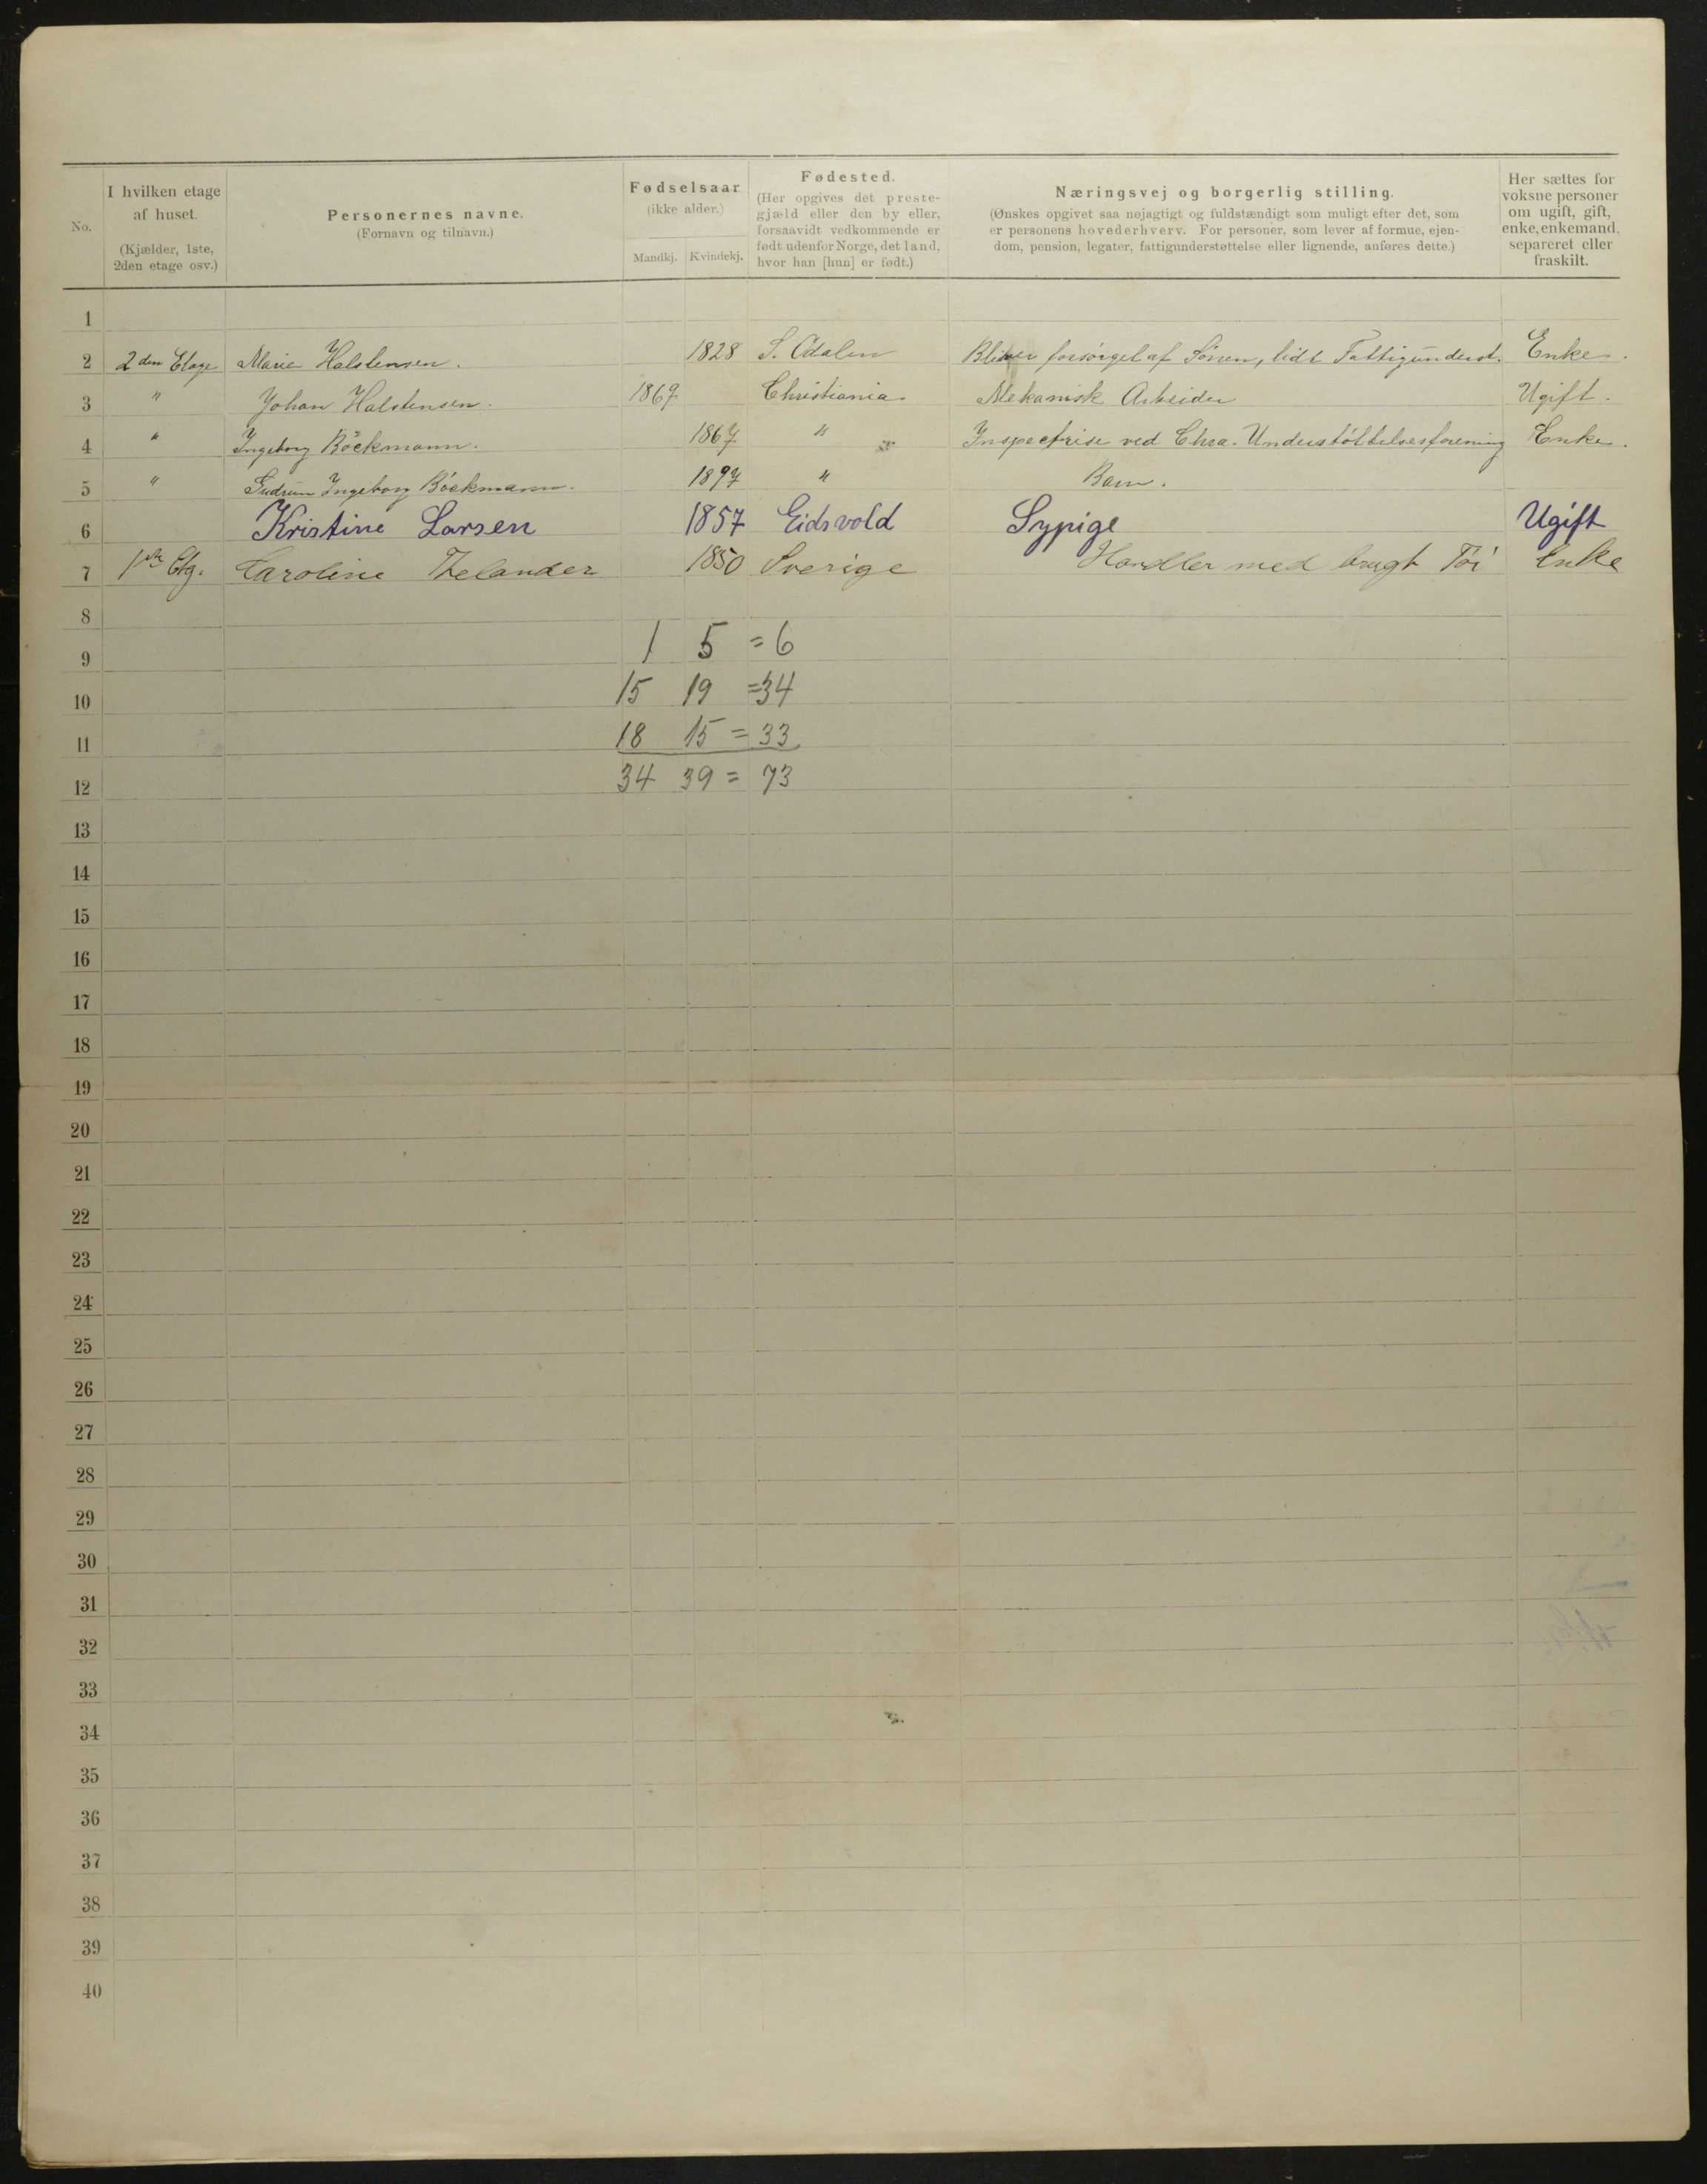 No.
I hvilken etage
af huset.
(Kjælder, 1ste,
2den etage osv.)
Personernes navne.
(Fornavn og tilnavn.)
Fødselsaar
(ikke alder.)
Mandkj. Kvindekj.
Fødested.
(Her opgives det preste-
gjæld eller den by eller,
forsaavidt vedkommende er
født udenfor Norge, det land,
hvor han [hun] er født.)
Næringsvej og borgerlig stilling.
(Ønskes opgivet saa nøjagtigt og fuldstændigt som muligt efter det, som
er personens hovederhverv. For personer, som lever af formue, ejen-
dom, pension, legater, fattigunderstøttelse eller lignende, anføres dette.)
Her sættes for
voksne personer
om ugift, gift,
enke, enkemand,
separeret eller
fraskilt.
1
2 2den Etage Marie Halstensen. 1828 S. Odalen Bliver forsörget af Sönen, lidt Fattigunderst. Enke.
3 " Johan Halstensen. 1869 Christiania Mekanisk Arbeider Ugift.
4 " Ingeborg Böckmann. 1867 " Inspectrise ved Chra. Understöttelsesforening Enke.
5 " Gudrun Ingeborg Böckmann. 1897 " Barn.
6 Kristine Larsen 1857 Eidsvold Sypige Ugift
7 1ste Etg. Caroline Thelander 1850 Sverige Handler med brugt Töi Enke
8
9 1 5 = 6
10 15 19 = 34
11 18 15 = 33
12 34 39 = 73
13
14
15
16
17
18
19
20
21
22
23
24
25
26
27
28
29
30
31
32
33
34
35
36
37
38
39
40